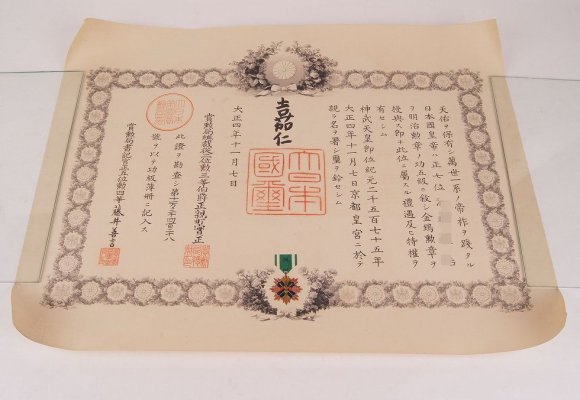 天佑ヲ保有シ萬世一系ノ帝祚ヲ踐タル
日本國皇帝ハ正七位
ヲ明治勲章ノ功五級ニ敍シ金鵄勲章ヲ
授與ス即チ此位ニ屬スル禮遇及ヒ特權ヲ
有セシム
神武天皇即位紀元二千五百七十五年
大正四年十一月七日京都皇宮ニ於テ
親ラ名ヲ署シ璽ヲ鈐セシム
嘉仁
大日本國璽
大正四年十一月七日
賞勲局總裁從二位勲三等伯爵正親町實正
此證ヲ勘査シ第十六千四百二十八
號ヲ以テ功級簿冊ニ記入ス
賞勲局書記官從五位勲四等藤井善言